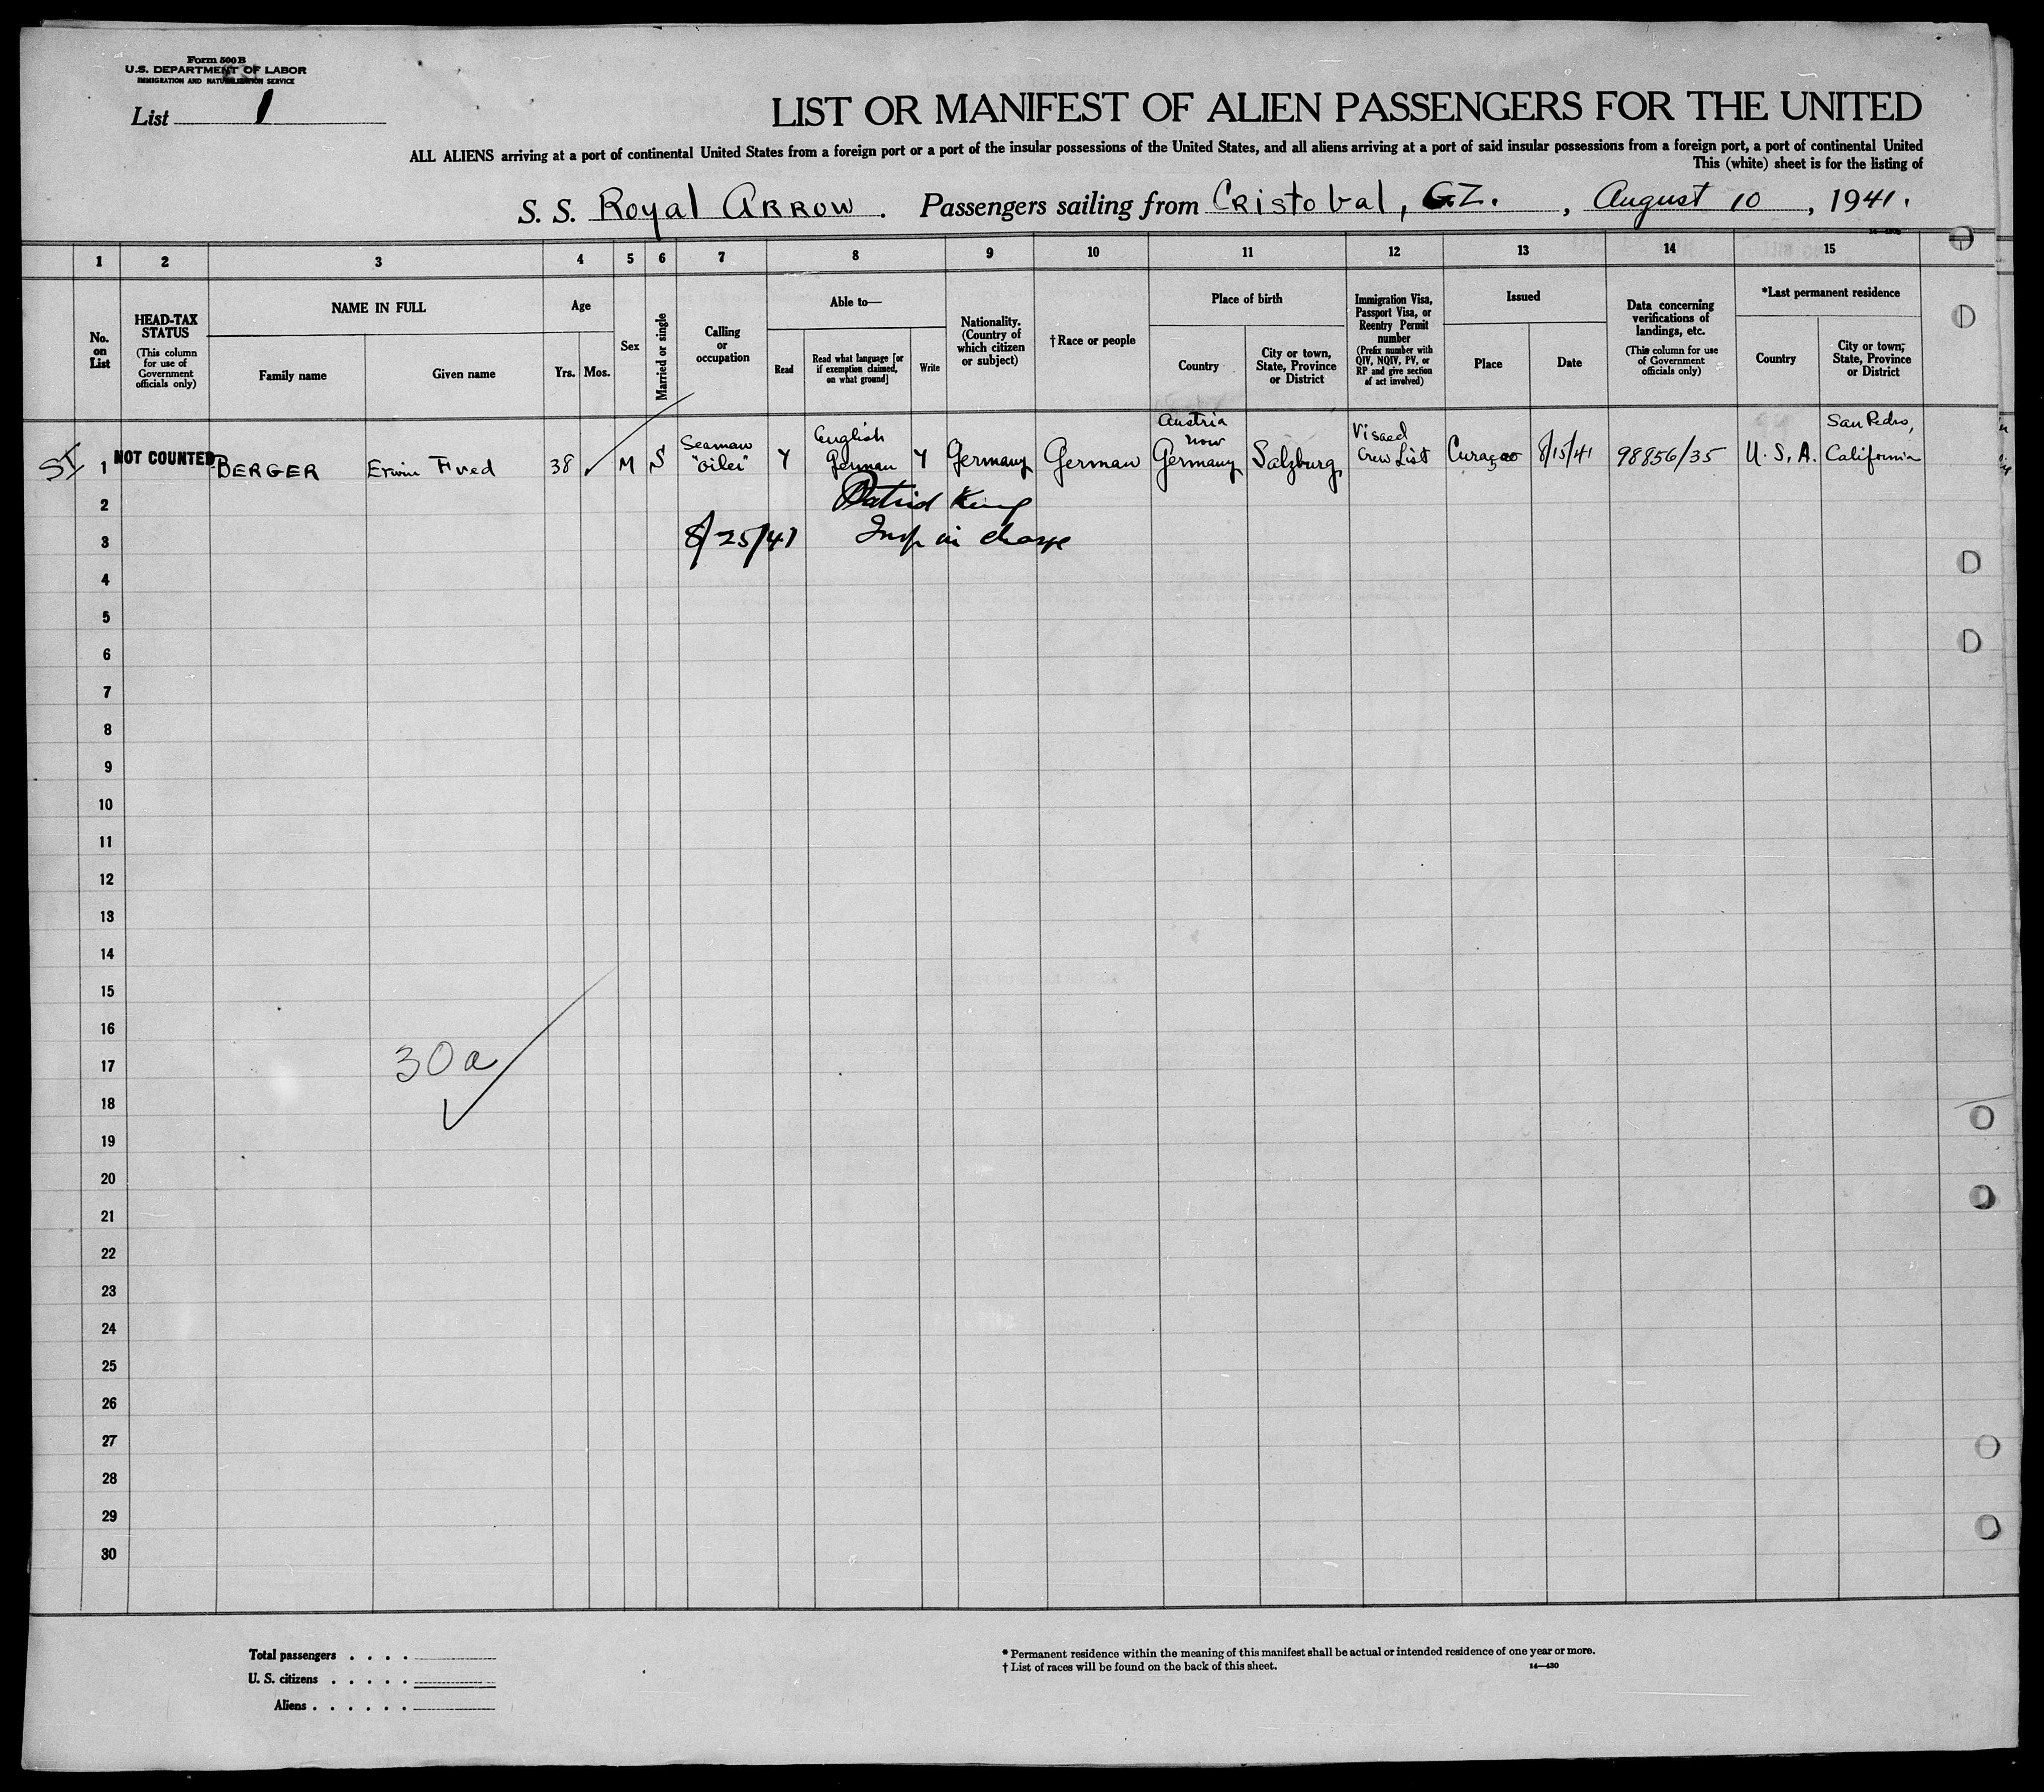 Form 500 B
U.S. DEPARTMENT OF LABOR
IMMIGRATION AND NATURALIZATION SERVICE
List 1
LIST OR MANIFEST OF ALIEN PASSENGERS FOR THE UNITED
ALL ALIENS arriving at a port of continental United States from a foreign port or a port of the insular possessions of the United States, and all aliens arriving at a port of said insular possessions from a foreign port, a port of continental United
This (white) sheet is for the listing of
S. S. Royal Arrow. Passengers sailing from Cristobal, CZ., August 10, 1941.
1 2 3 4 5 6 7 8 9 10 11 12 13 14 15
No. on List
HEAD-TAX STATUS
(This column for use of Government officials only)
NAME IN FULL
Family name
Given name
Age
Yrs. Mos.
Sex
Married or single
Calling or occupation
Able to—
Read
Read what language [or if exemption claimed, on what ground]
Write
Nationality. (Country of which citizen or subject)
†Race or people
Place of birth
Country
City or town, State, Province or District
Immigration Visa, Passport Visa, or Reentry Permit number
(Prefix number with QIV, NQIV, PV, or RP and give section of act involved)
Issued
Place
Date
Data concerning verifications of landings, etc.
(This column for use of Government officials only)
*Last permanent residence
Country
City or town, State, Province or District
SI 1 NOT COUNTED BERGER Erwin Fred 38 M S Seaman "Oiler" Y English German Y Germany German Austria now Germany Salzburg Visaed Crew List Curaçao 8/15/41 98856/35 U.S.A. San Pedro, California
2 King
3 8/25/41 Insp in charge
4
5
6
7
8
9
10
11
12
13
14
15
16
17 30a
18
19
20
21
22
23
24
25
26
27
28
29
30
Total passengers . . . .
U. S. citizens . . . . .
Aliens . . . . . .
* Permanent residence within the meaning of this manifest shall be actual or intended residence of one year or more.
† List of races will be found on the back of this sheet.
14—430